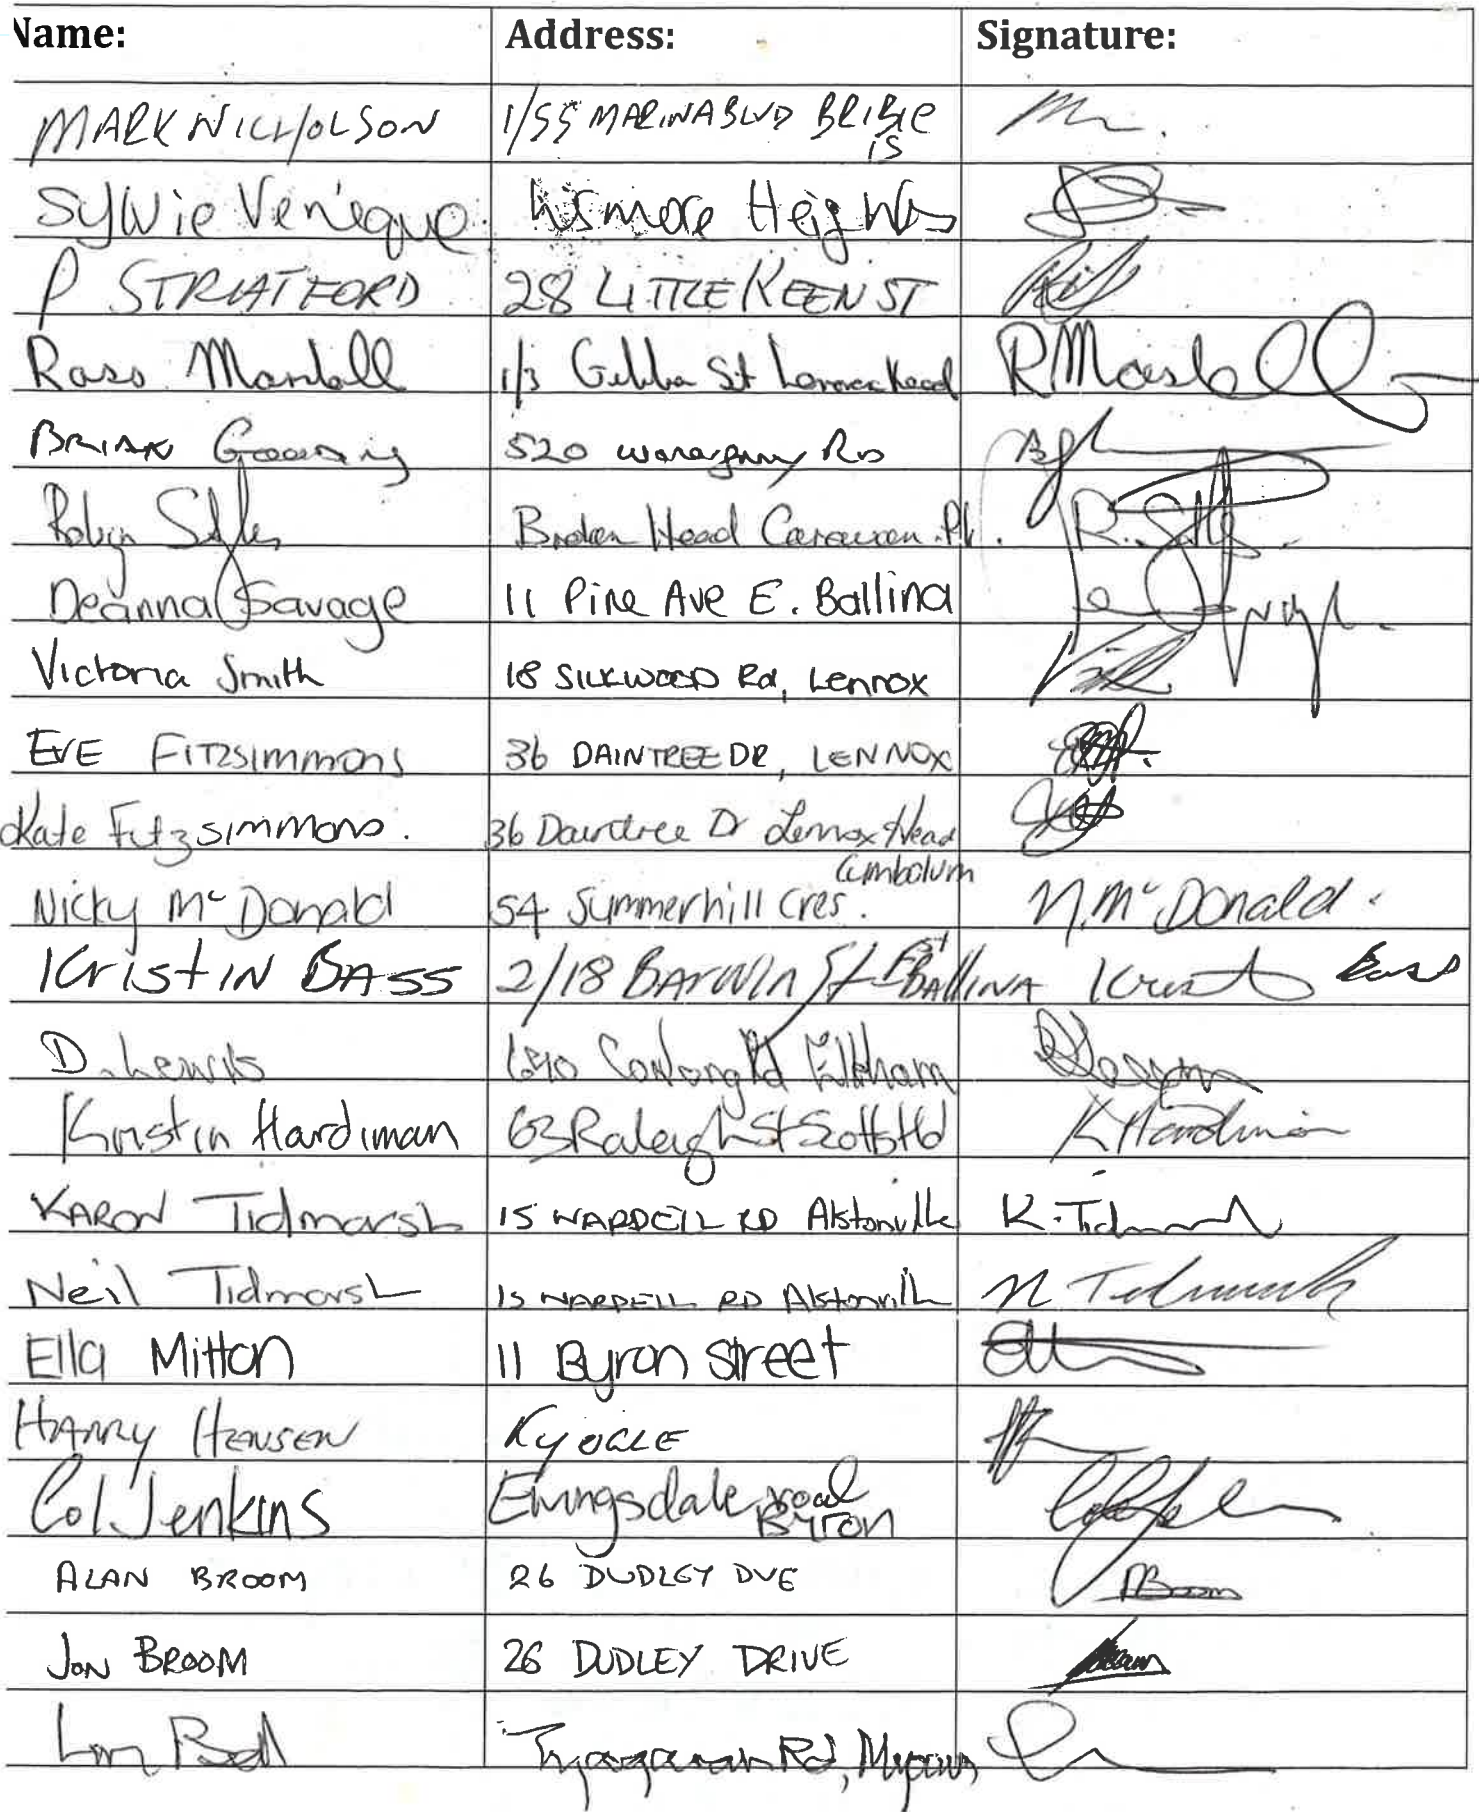 Name: Address: Signature:
MARK NICHOLSON 1/55 MARINA BLVD BRIBIE
is
Sylvie Venieque Lismore Heights
P STRATFORD 28 LITTLE KEEN ST
Ross Mardall 1/3 Gibba St Lennox Head R Mardall
BRIAN 520 Rd
Robyn Styles Broken Head Caravan Pk. R. Styles
Deanna Savage 11 Pine Ave E. Ballina
Victoria Smith 18 SILKWOOD Rd, Lennox
EVE FITZSIMMONS 36 DAINTREE DR, LENNOX
Kate Fitzsimmons. 36 Daintree Dr Lennox Head
Cumbalum
Nicky McDonald 54 Summerhill Cres. N. McDonald.
Kristin BASS 2/18 BARWIN St East BALLINA Krist Bass
D. Lewis 640 Cowlong Rd Eltham
Kristin Hardiman 63 Raleigh St Scotts Hd K Hardiman
KARON Tidmarsh 15 WARDELL RD Alstonville K. Tidmarsh
Neil Tidmarsh 15 WARDELL RD Alstonville N Tidmarsh
Ella Mitton 11 Byron street
HARRY HENSEN KYOGLE
Col Jenkins Ewingsdale road
Byron
ALAN BROOM 26 DUDLEY DVE ABroom
JON BROOM 26 DUDLEY DRIVE
Bell Tyagarah Rd, Myocum